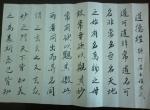 道德經
道可道非常道名可
名非常名無名天地
之始有名萬物之母
故常無欲以觀其妙
常有欲以觀其徼此
兩者同出而異名同
謂之玄玄之又玄眾
妙之門天下皆知美
之為美斯惡已皆知